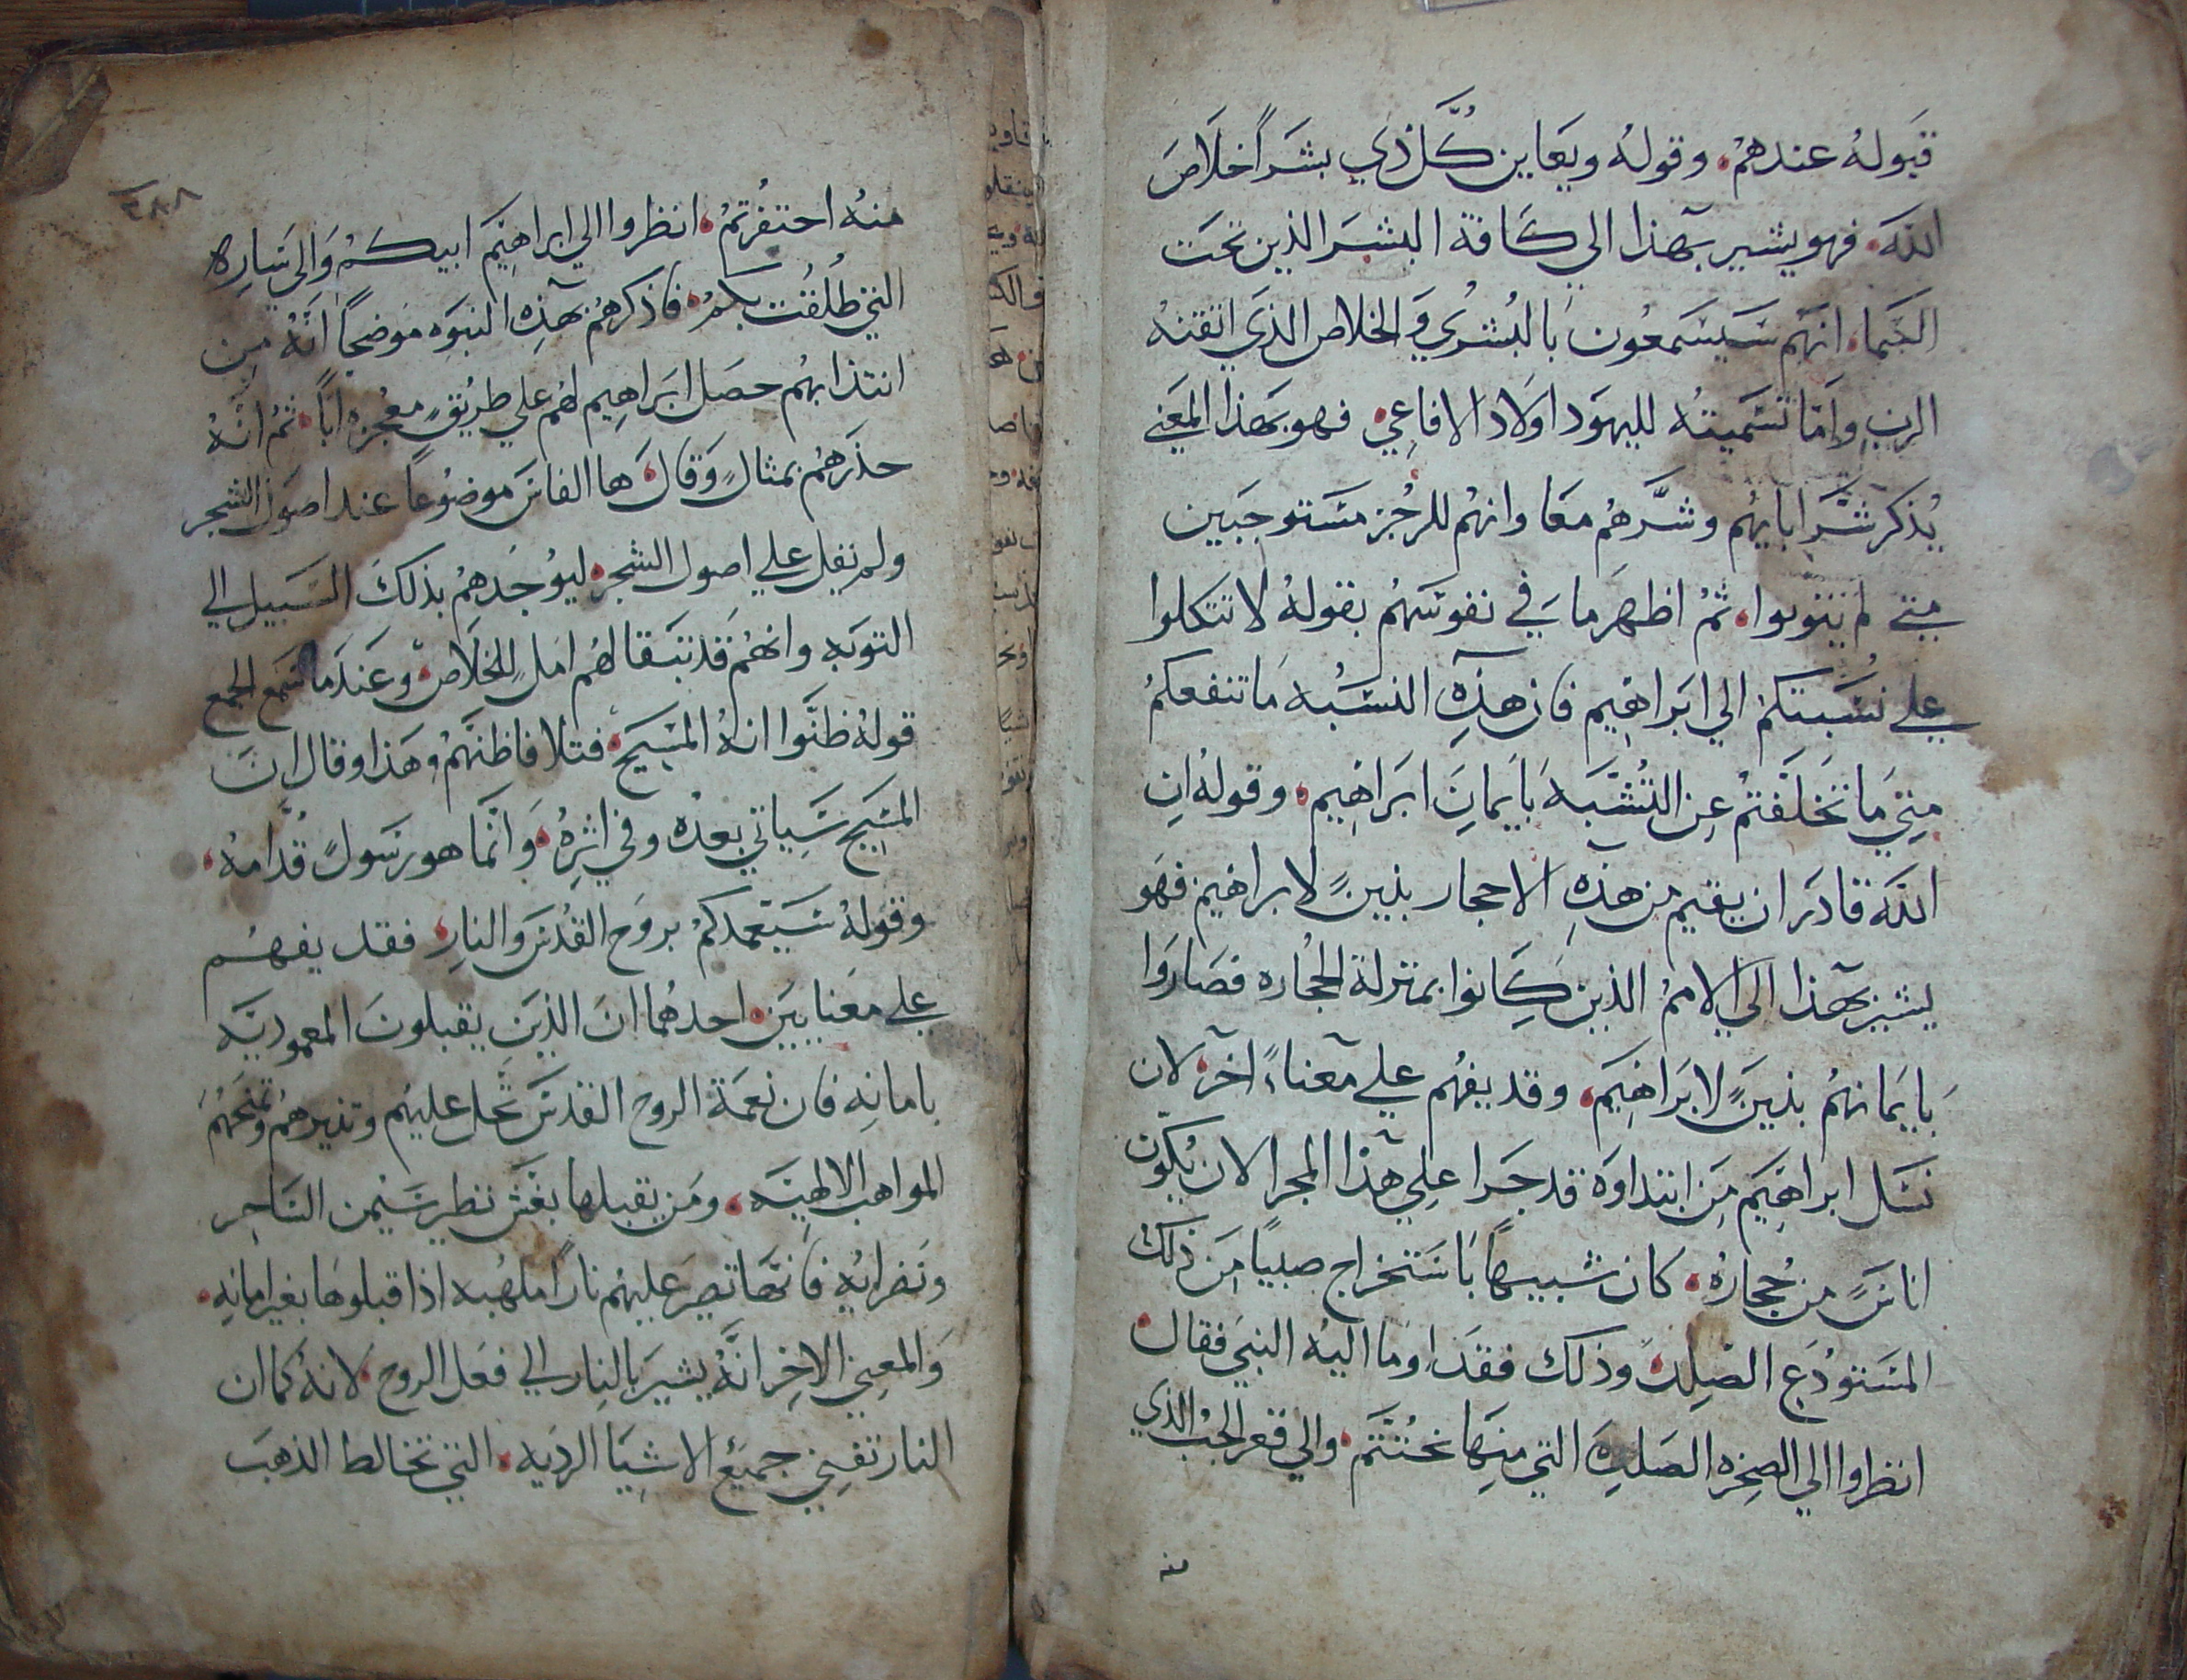 قبوله عندهم. وقوله ويعاين كُل ذي بشرًا خلاص
الله. فهو يشير بهذا الي كافة البشر الذين تحت
السما. انهم سيسمعون بالبُشري والخلاص الذي اتقنه
الرب. واما تسميته لليهود اولاد الافاعي. فهو بهذا المعني
يُذكر شر ابايهم وشرهم معا وانهم للرجز مستوجبين
متي لم يتوبوا. ثم اظهر ما في نفوسهم بقوله لا تتكلوا
علي نسبتكم الي ابراهيم فان هذه النسبه ما تنفعكم
متي ما تخلفتم عن التشبه بايمان ابراهيم. وقوله ان
الله قادر ان يقيم من هذه الاحجار بنينً لابراهيم فهو
يشير بهذا الي الامم الذين كانوا بمنزلة الحجاره فصاروا
بايمانهم بنينً لابراهيم. وقد يفهم علي معناءً اخر. لان
نسل ابراهيم من ابتداوه قد جرا علي هذا المجرا لان يكون
اناسً من حُجاره. كان شبيهًا باستخراج صبيا من ذلك
المستودع الصلد. وذلك فقد اوما اليه النبي فقال.
انظروا الي الصخره الصلده التي منها نحُتتم. والي قعر الجب الذي
منه
٣٨٨
منه احتفرتم. انظروا الي ابراهيم ابيكم والي ساره
التي طُلقت بكم. فاذكرهم بهذه النبوه موضحًا انه من
ابتدايهم حصل ابراهيم لهم علي طريقٍ معجزه ابًا. ثم انه
حذرهم بمثالٍ وقال. ها الفاس موضُوعًا عند اصول الشجر
ولم نقل علي اصول الشجره ليوُجُدهم بذلك السبيل الي
التوبه وانهم قد تبقا لهم املٍ للخلاص. وعندما سمع الجمع
قوله ظنوا انه المسيح. فتلافا ظنهم وهذا وقال ان
المسيح سياتي بعده وفي اثره. وانما هو رسولً قُدامه.
وقوله سيعمدكم بروح القُدس والنار. فقد يفهم
علي معنايين. احدهما ان الذين يقبلون المعموديه
بامانه فان نعمة الروح القدس تحل عليهم وتنيرهم وتمنحهم
المواهب الالهيه. ومن يقبلها بغش نظير سيمن الساحر
ونضرايه فانها تصير عليهم نارًا ملهُبه اذا قبلوها بغير امانه.
والمعني الاخر انه يشير بالنار الي فعل الروح. لانه كما ان
النار تفني جميع الاشيا الرديه. التي تخالط الذهب